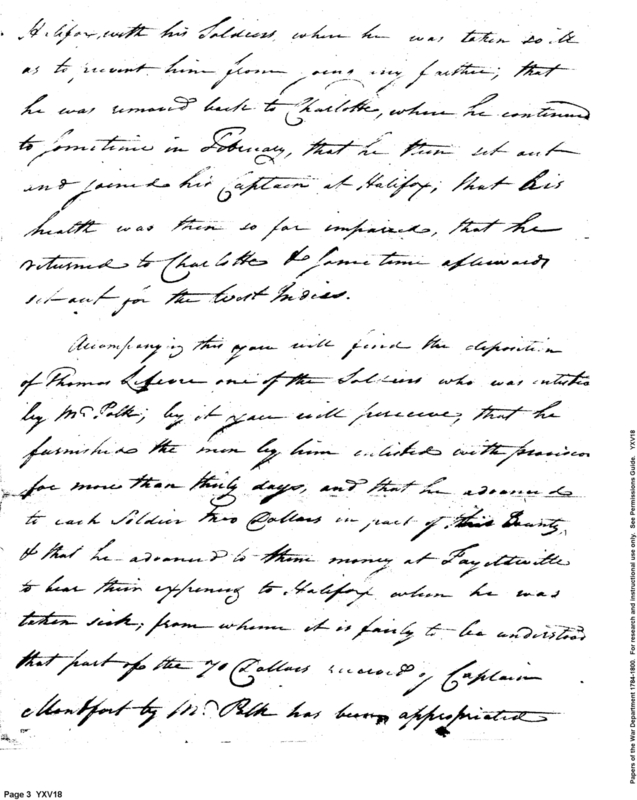 Halifax, with his Soldiers, where he was taken so ill
as to prevent him from going any further; that
he was removed back to Charlotte, where he continued
to sometime in February, that he then set out
and joined his Captain at Halifox; that his
health was then so far impaired, that he
returned to Charlotte & some time afterwards
set out for the West Indies.
Accompanying this you will find the deposition
of Thomas Lefevre one of the Soldiers who was enlisted
by Mr. Polk; by it you will perceive, that he
furnished the men by him enlisted with provision
for more than thirty days, and that he advanced
to each Soldier two Dollars in part of their Bounty,
& that he advanced to them money at Fayetteville
to bear their expenses to Halifox when he was
taken sick; from whence it is fairly to be understood
that part of the 70 Dollars received of Captain
Montfort by Mr. Polk has been appropriated
Page 3 YXV18
Papers of the War Department 1784-1800. For research and instructional use only. See Permissions Guide. YXV18